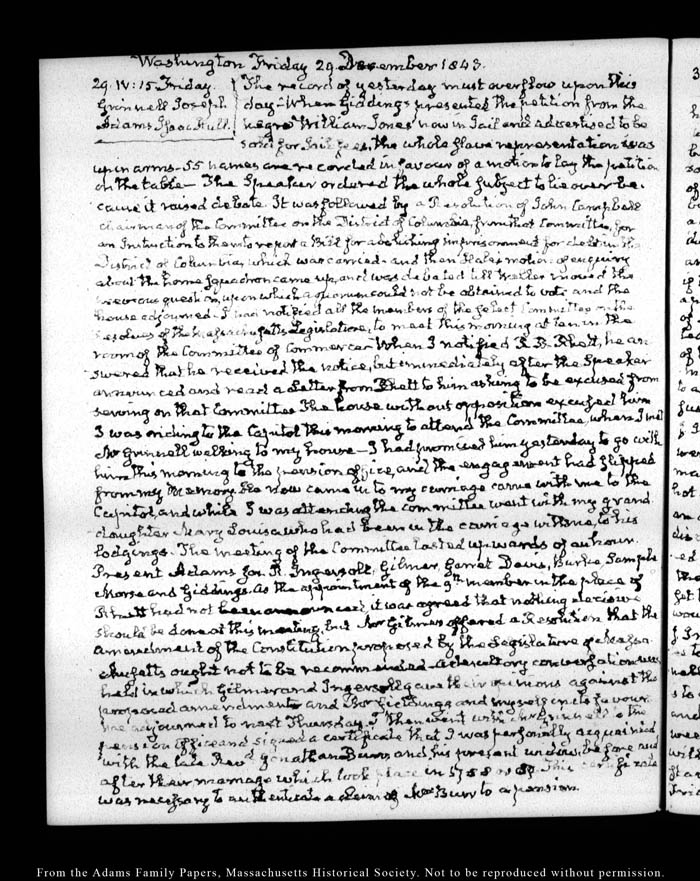 Washington Friday 29 December 1843.
29. IV:15 Friday.
Grinnell Joseph
Adams Isaac Hull.
The record of yesterday must overflow upon this
day. When Giddings presented the petition from the
negro William Jones now in Jail and advertised to be
sold for Jail fees, the whole slave representation was
up in arms. 55 names are recorded in favour of a motion to lay the petition
on the table — The Speaker ordered the whole subject to lie over be-
cause it raised debate. It was followed by a Resolution of John Campbell
chairman of the Committee on the District of Columbia, from that Committee, for
an Instruction to them to report a Bill for abolishing imprisonment for debt in the
District of Columbia, which was carried - and then Hale's motion of enquiry
about the home squadron came up, and was debated till Weller moved the
previous question, upon which a quorum could not be obtained to vote and the
house adjourned. I had notified all the members of the select Committee on the
resolves of the Massachusetts Legislature, to meet this morning at ten in the
room of the Committee of Commerce. When I notified R. B. Rhett, he an-
swered that he received the notice, but immediately after the Speaker
announced and read a Letter from Rhett to him asking to be excused from
serving on that Committee. The house without opposition excused him
I was riding to the Capitol this morning to attend the Committee, when I met
Mr Grinnell walking to my house — I had promised him yesterday to go with
him this morning to the pension office, and the engagement had slipped
from my Memory. He now came in to my carriage came with me to the
Capitol, and while I was attending the committee went with my grand
daughter Mary Louisa who had been in the carriage with me, to his
lodgings. The meeting of the Committee lasted upwards of an hour.
Present Adams J. R. Ingersoll, Gilmer, Garret Davis, Burke, Sample
Morse and Giddings. As the appointment of the 9th member in the place of
Rhett had not been announced, it was agreed that nothing decisive
should be done at this meeting, but Mr Gilmer offered a Resolution that the
amendment of the Constitution, proposed by the Legislature of Massa-
chusetts ought not to be recommended. A desultory conversation was
held in which Gilmer and Ingersoll gave their opinions against the
proposed amendments and Mr Giddings and myself in its favour.
We adjourned to next Thursday. I then went with Mr Grinnell to the
pension Office and signed a certificate that I was personally acquainted
with the late Revd Jonathan Burr and his present widow, before and
after their marriage which took place in 1788 or 89. This certificate
was necessary to authenticate a claim of Mrs Burr to a pension.
From the Adams Family Papers, Massachusetts Historical Society. Not to be reproduced without permission.